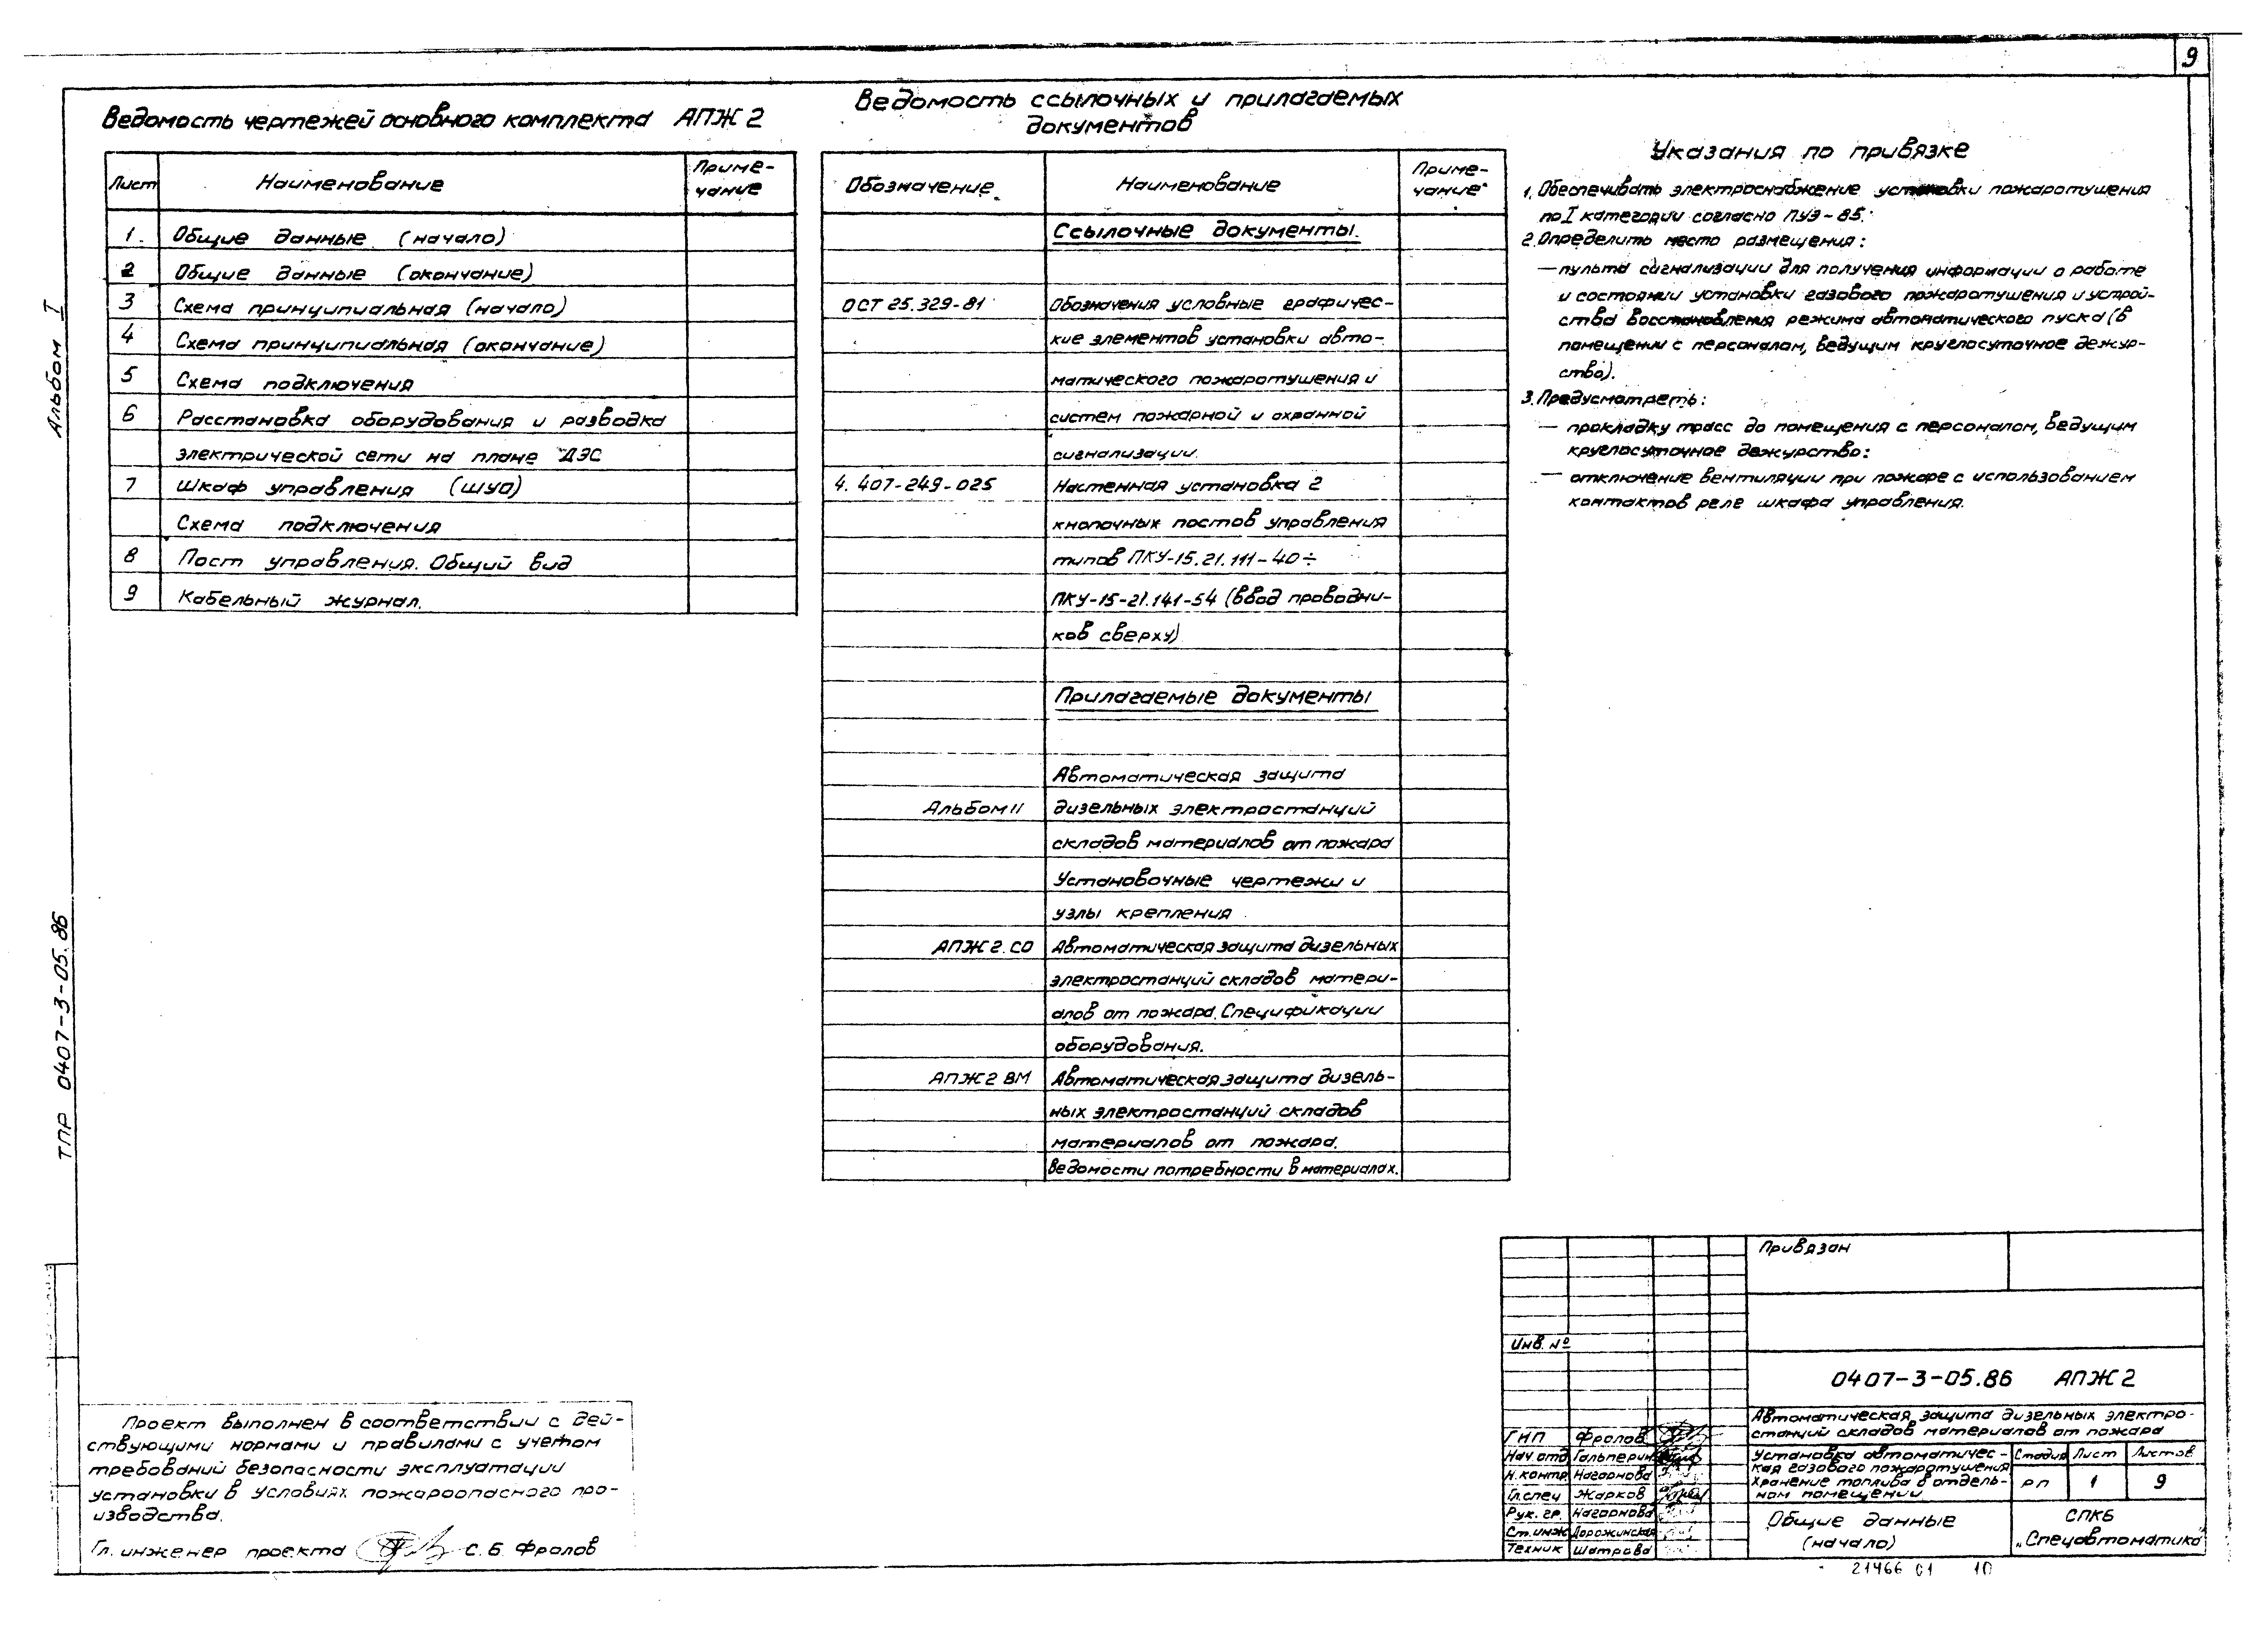 9
Альбом I
ТПР 0407-3-05.86
Ведомость чертежей основного комплекта АПЖ 2
Лист Наименование Приме-
чание
1. Общие данные (начало)
2 Общие данные (окончание)
3 Схема принципиальная (начало)
4 Схема принципиальная (окончание)
5 Схема подключения
6 Расстановка оборудования и разводка
электрической сети на плане ДЭС
7 Шкаф управления (ШУО)
Схема подключения
8 Пост управления. Общий вид
9 Кабельный журнал.
Ведомость ссылочных и прилагаемых
документов
Обозначение Наименование Приме-
чание
Ссылочные документы.
ОСТ 25.329-81 Обозначения условные графичес-
кие элементов установки авто-
матического пожаротушения и
систем пожарной и охранной
сигнализации.
4.407-249-025 Настенная установка 2
кнопочных постов управления
типов ПКУ-15.21.111-40÷
ПКУ-15-21.141-54 (ввод проводни-
ков сверху)
Прилагаемые документы
Автоматическая защита
Альбом II дизельных электростанций
складов материалов от пожара
Установочные чертежи и
узлы крепления
АПЖ 2. СО Автоматическая защита дизельных
электростанций складов матери-
алов от пожара. Спецификации
оборудования.
АПЖ 2 ВМ Автоматическая защита дизель-
ных электростанций складов
материалов от пожара.
Ведомости потребности в материалах.
Указания по привязке
1. Обеспечивать электроснабжение установки пожаротушения
по I категории согласно ПУЭ-85.
2. Определить место размещения:
— пульта сигнализации для получения информации о работе
и состоянии установки газового пожаротушения и устрой-
ства восстановления режима автоматического пуска (в
помещении с персоналом, ведущим круглосуточное дежур-
ство).
3. Предусмотреть:
— прокладку трасс до помещения с персоналом, ведущим
круглосуточное дежурство:
— отключение вентиляции при пожаре с использованием
контактов реле шкафа управления.
Проект выполнен в соответствии с дей-
ствующими нормами и правилами с учетом
требований безопасности эксплуатации
установки в условиях пожароопасного про-
изводства.
Гл. инженер проекта С. Б. Фролов
Привязан
Инв. №
0407-3-05.86 АПЖ 2
Автоматическая защита дизельных электро-
станций складов материалов от пожара
ГИП Фролов
Нач. отд Гальперин
Н. контр Нагорнова
Гл. спец Жарков
Рук. гр. Нагорнова
Ст. инж Дорожинская
Техник Шатрова
Установка автоматичес-
кая газового пожаротушения
Хранение топлива в отдель-
ном помещении
Стадия Лист Листов
РП 1 9
Общие данные
(начало)
СПКБ
„Спецавтоматика"
21466 01 10